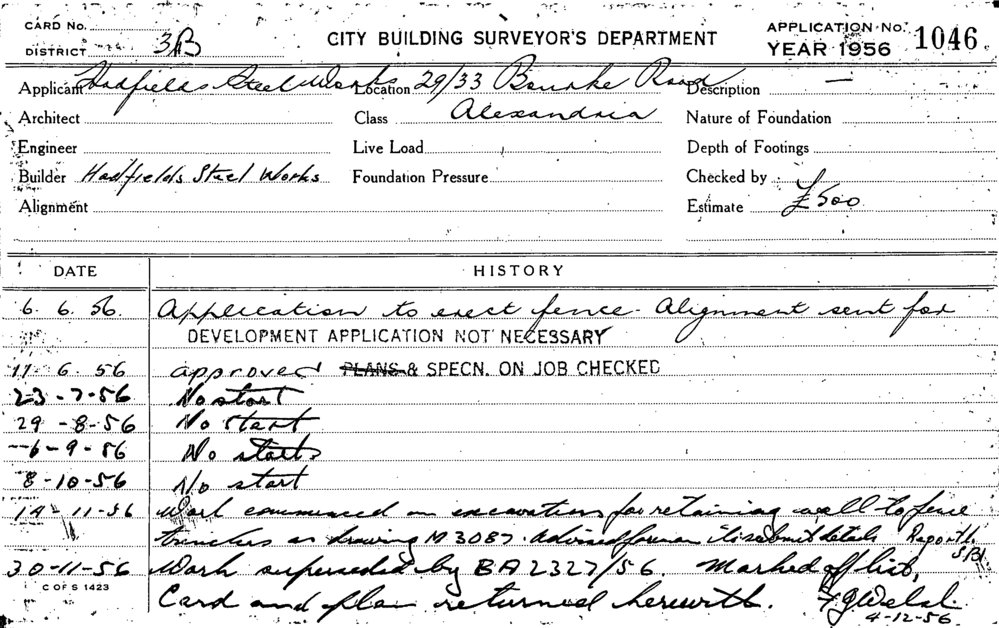 CARD No.
DISTRICT 3B
CITY BUILDING SURVEYOR'S DEPARTMENT
APPLICATION No. 1046
YEAR 1956
Applicant Hadfields Steel Works Location 29/33 Bourke Road Description —
Architect Class Alexandria Nature of Foundation
Engineer Live Load Depth of Footings
Builder Hadfields Steel Works Foundation Pressure Checked by
Alignment Estimate £500
DATE HISTORY
6. 6. 56. Application to erect fence. Alignment sent for
DEVELOPMENT APPLICATION NOT NECESSARY
11. 6. 56 approved PLANS & SPECN. ON JOB CHECKED
23-7-56 No start
29-8-56 No start
6-9-56 No start
8-10-56 No start
14-11-56 Work commenced on excavations for retaining wall to fence
trenches as drawing M3087. Advised foreman to submit details
30-11-56 Work superseded by BA 2327/56. Marked off list,
C OF S 1423
Card and plan returned herewith. FJ Welsh
4-12-56